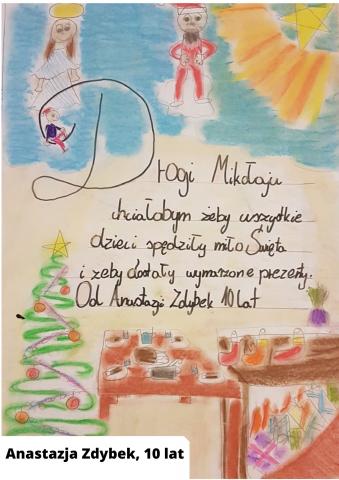 Drogi Mikołaju
chciałabym żeby wszystkie
dzieci spędziły miło Święta
i żeby dostały wymarzone prezenty.
Od Anastazji Zdybek 10 lat
Anastazja Zdybek, 10 lat